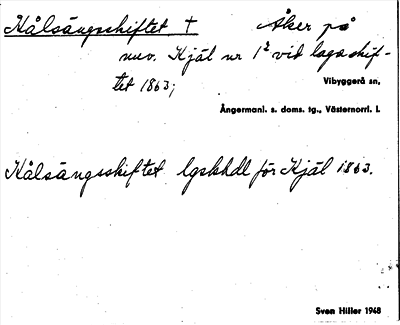 Kålsängsskiftet † Åker på
nuv. Kjäl nr 1² vid lagaskif-
tet 1863;
Vibyggerå sn,
Ångermanl. s. doms. tg., Västernorrl. l.
Kålsängsskiftet lgskhdl för Kjäl 1863.
Sven Hiller 1948